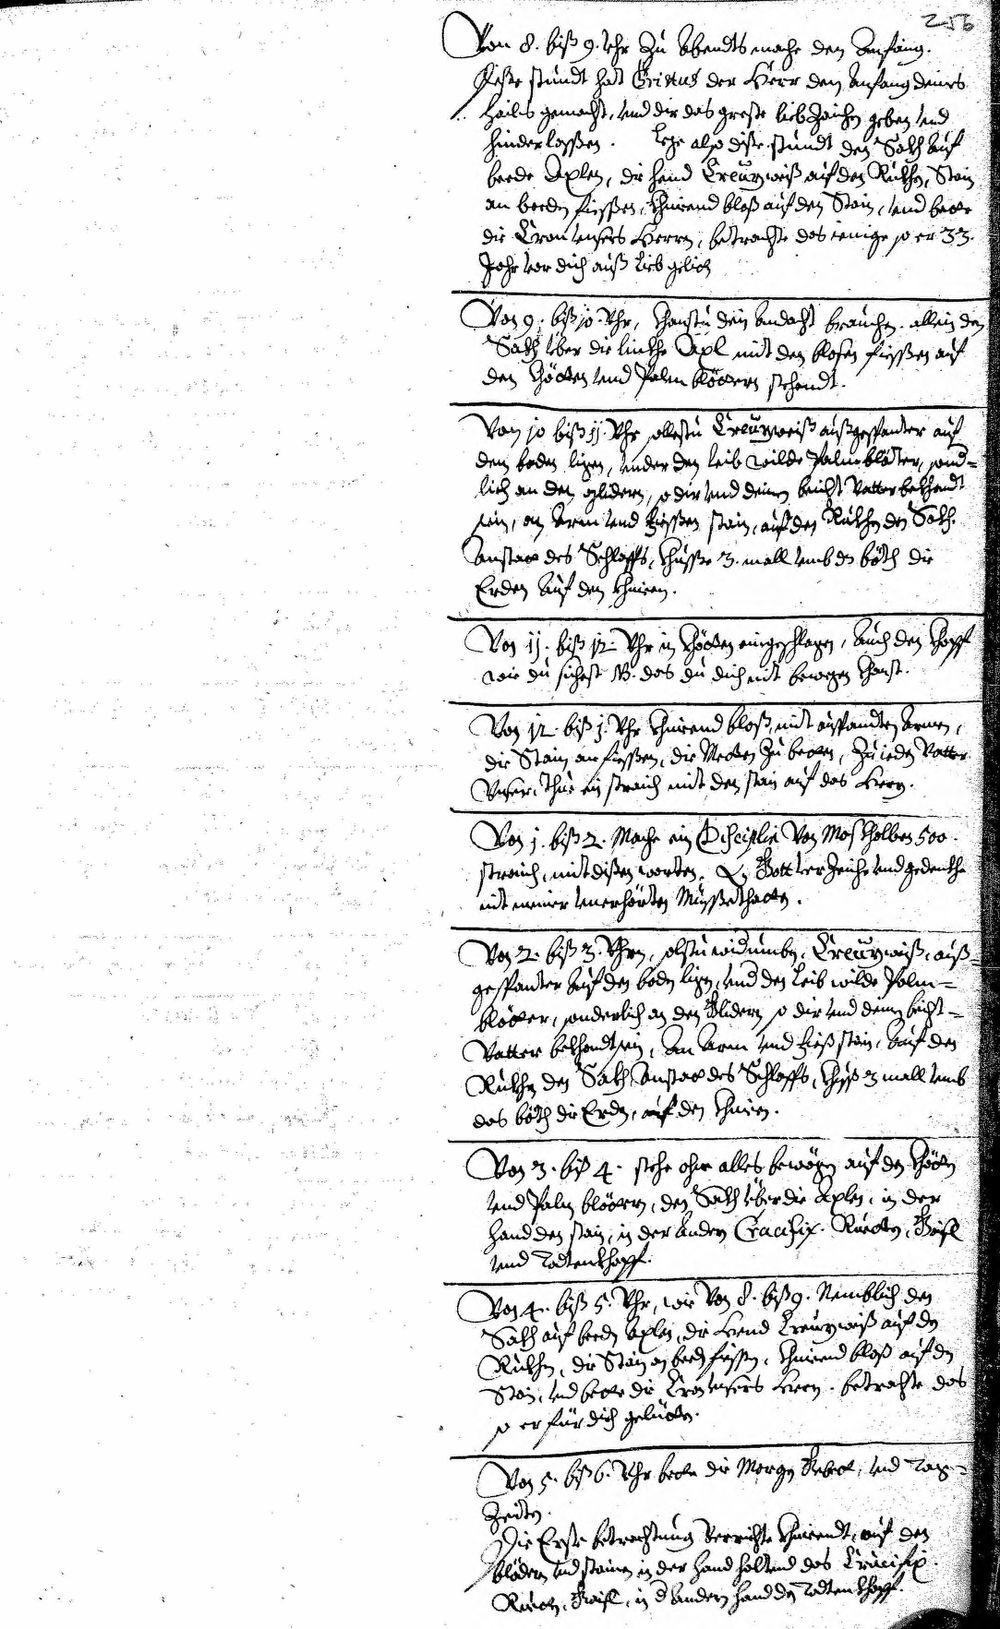 256
Von 8. biß 9. Uhr Zu Abendts mache den Anfang.
stundt hat Cristus der Herr den Anfang deines
Hails gemacht, und dir das greste lieb Zaichen geben und
hinderlassen. Lege also dise stundt den Sakh auf
beede Axlen, die hend Creuzweiß auf den Rukhen, Stain
an beeden fiessen, khniend bloß auf den Stain, und bette
die Cron unsers Herrn, betrachte das ienige so er 33.
Jahr vor dich auß lieb geliten
Von 9. biß 10. Uhr, khanstu dein Andacht brauchen. allein den
Sakh über die linkhe Axl mit den blosen fiessen auf
den khötten und Palm blöttern stehendt.
Von 10 biß 11. Uhr sollestu Creuzweiß außgespanter auf
dem boden ligen, under den leib wilde Palm blötter, sond=
lich an den glidern, so dir und deinen beicht Vatter bekhandt
sein, an Arm und fiessen stain, auf den Rukhen den Sakh.
Anstatt des Schlaffs, khüsse 3. mall umb das böth die
Erden auf den khnieen.
Von 11. biß 12. Uhr in khötten eingeschlagen, Auch den khopf
wie du sichest das du dich nit bewegen khanst.
Von 12. biß 1. Uhr khniend bloß, mit außspandten Armen,
die Stain an fiessen, die Metten Zu betten, Zu ieden Vatter
Unser, thue ein straich mit den stain auf das Herz.
Von 1. biß 2. Mache ein Disciplin Von 500.
straich, mit disen worten. O Gott verzeiche und gedenkhe
nit meiner unerhörten Missethatten.
Von 2. biß 3. Uhrn, solstu widumben, Creuzweiß, auß=
gespanter auf den boden ligen, und den Leib wilde Palm=
blötter, sonderlich an den Glidern so dir und deinen beicht=
Vatter bekhandt sein, An Arm und fieß stain, Auf den
Rukhen den Sakh, Anstatt des Schlaffs, khüß 3 mall umb
das böth die Erden, auf den khnien.
Von 3. biß 4. stehe ohne alles bewögen auf den khötten
und Palm blöttern, den Sakh über die Axlen, in der
hand den stain, in der andern Crucifix. Rueten, Gaisl
und Todtenkhopf.
Von 4. biß 5. Uhr, wie Von 8. biß 9. Nemblich den
Sakh auf beeden Axlen, die Hend Creuzweiß auf den
Rukhen, die Stain an beeden fiessen, khniend bloß auf den
Stain, und bette die Cron unsers Herrn. betrachte das
so er für dich gelitten.
Von 5. biß 6. Uhr bette die Morgen Gebett, und Tag=
Zeiten.
Die Erste betrachtung Verrichte khniendt, auf den
blödern und stainen in der Hand haltend das Crucifix.
Rueten, Gaisl, in d Andern hand den Todtenkhopf.